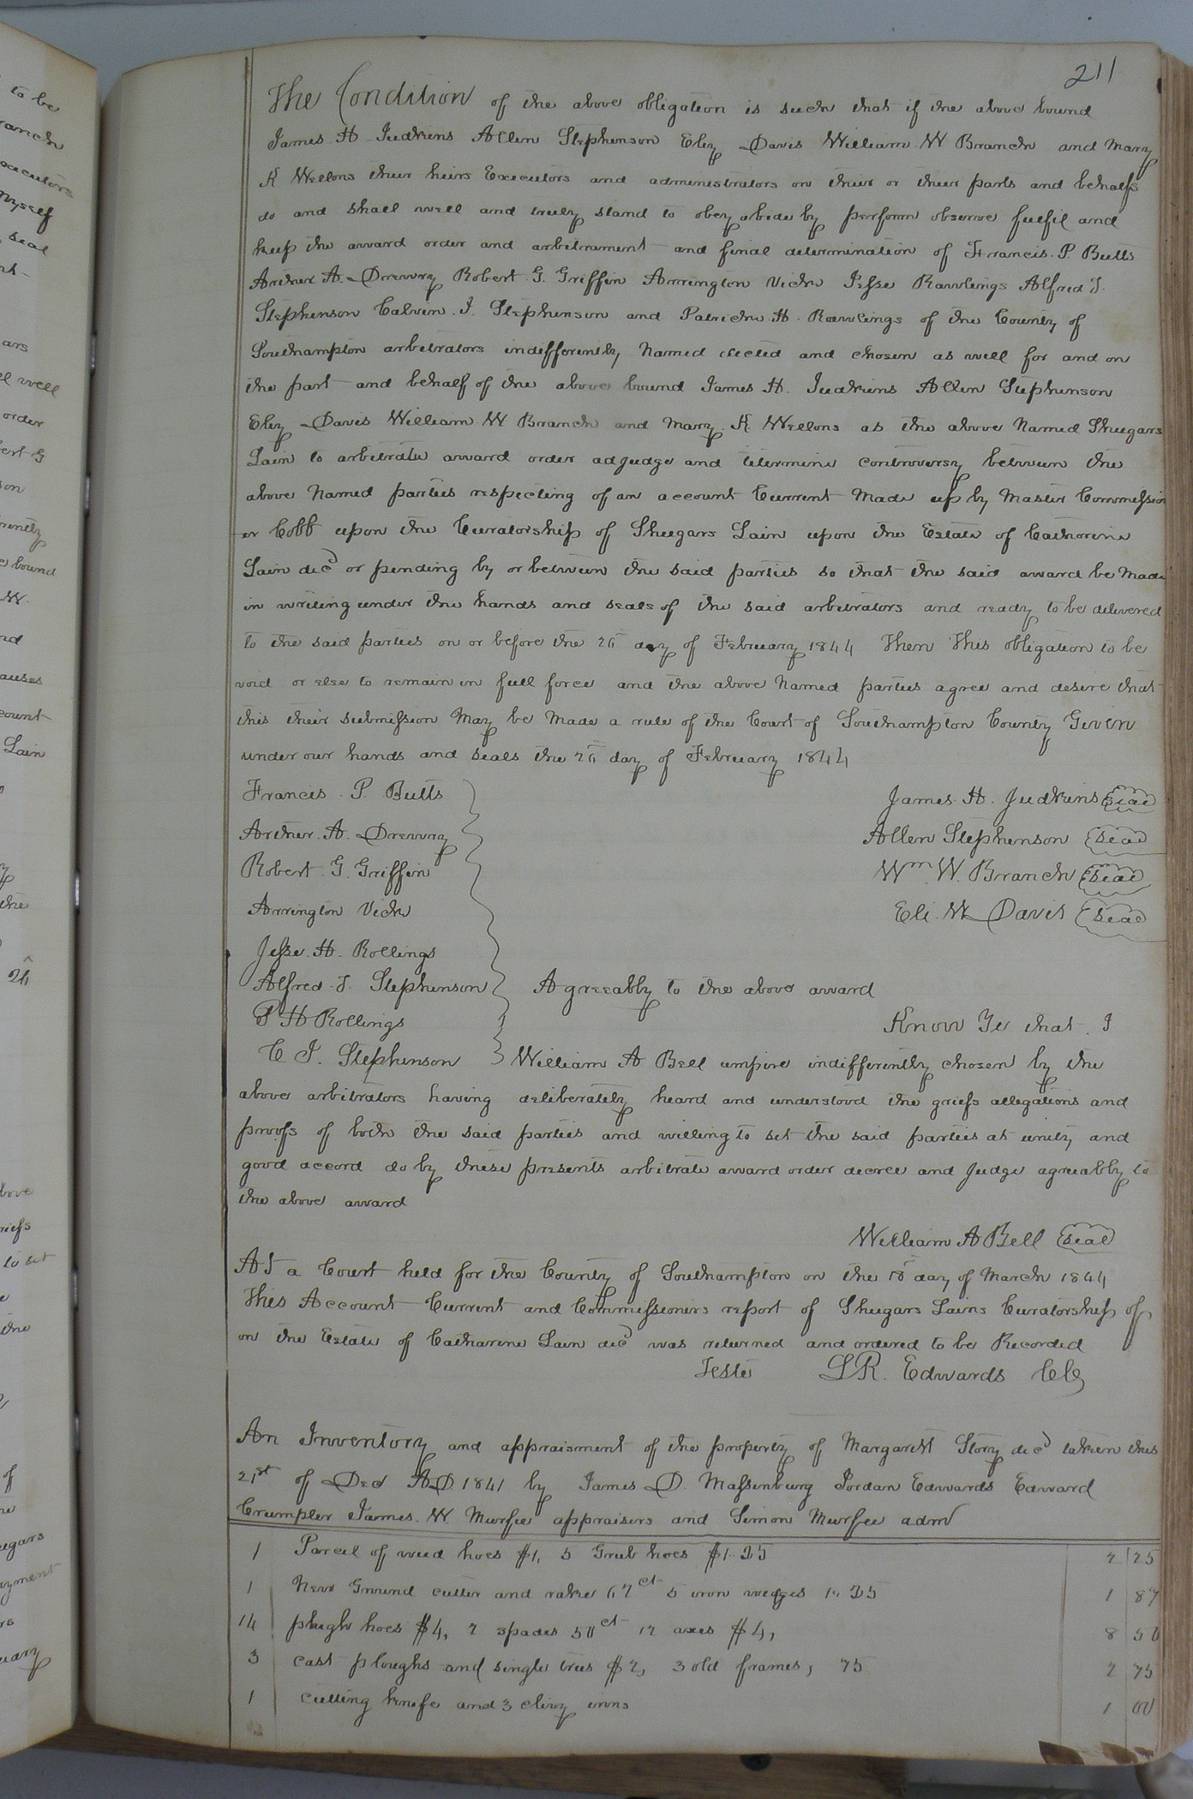 211
The Condition of the above obligation is such that if the above bound
James H Judkins Allen Stephenson Eley Davis William W Branch and Mary
K Wellons their heirs Executors and administrators on their or their parts and behalfs
do and shall well and truly stand to obey abide by perform observe fulfil and
keep the award order and arbitrament and final determination of Francis P. Butts
Arther A. Drewry Robert G. Griffin Arrington Vick Jesse Rawlings Alfred J.
Stephenson Calvin J. Stephenson and Patrick H. Rawlings of the County of
Southampton arbitrators indifferently Named elected and chosen as well for and on
the part and behalf of the above bound James H. Judkins Allen Stephenson
Eley Davis William W Branch and Mary K Wellons as the above Named Shugars
Lain to arbitrate award order adjudge and determine controversy between the
above Named parties respecting of an account Current Made up by Master Commission
er Cobb upon the Curatorship of Shugars Lain upon the Estate of Catharine
Lain decd or pending by or between the said parties so that the said award be Made
in writing under the hands and seals of the said arbitrators and ready to be delivered
to the said parties on or before the day of February 1844 Then this obligation to be
void or else to remain in full force and the above Named parties agree and desire that
this their submission May be Made a rule of the Court of Southampton County Given
under our hands and seals the day of February 1844
Francis P. Butts James H. Judkins seal
Arther A. Drewry Allen Stephenson seal
Robert G. Griffin Wm. W. Branch seal
Arrington Vick Eli W Davis seal
Jesse H. Rollings
Alfred J. Stephenson Agreeably to the above award
P H Rollings Know Ye that I
C J. Stephenson William A Bell umpire indifferently chosen by the
above arbitrators having deliberately heard and understood the griefs allegations and
proofs of both the said parties and willing to set the said parties at unity and
good accord do by these presents arbitrate award order decree and Judge agreeably to
the above award
William A Bell seal
At a Court held for the County of Southampton on the 18 day of March 1844
This Account Current and Commissioners report of Shugars Lains Curatorship of
on the Estate of Catharine Lain decd was returned and ordered to be Recorded
Teste L R. Edwards Clk
An Inventory and appraisment of the property of Margarett Story decd taken this
21st of Dec AD 1841 by James D. Massenburg Jordan Edwards Edward
Crumpler James W Murfee appraisers and Simon Murfee admr
1 Parcel of weed hoes $1, 5 Grub hoes $1.25 2 25
1 New Ground cutter and rake 62 ct 5 iron wedges 1.25 1 87
14 plugh hoes $4, 2 spades 50 ct 12 axes $4, 8 50
3 cast ploughs and single trees $2, 3 old frames, 75 2 75
1 cutting knife and 3 irons 1 00